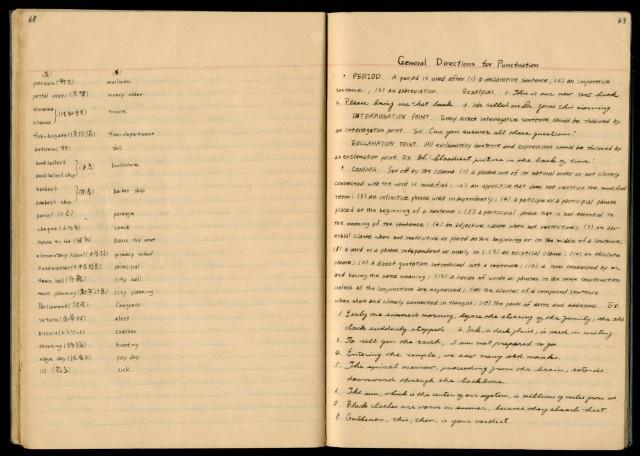 68
(英) (米)
postman mailman
postal order money order
kinema
cinema movie
fire-brigade fire department
autumn fall
bookseller's
bookstore
barber's barber shop
parcel package
cheque check
house to let house for rent
elementary school primary school
headmaster principal
town hall city hall
town planning city planning
Parliament Congress
return elect
biscuit cracker
shooting hunting
wage day pay day
ill sick
69
General Directions for Punctuation
PERIOD. A period is used after (1) a declarative sentence, (2) an imperative
sentence, (3) an abbreviation. Examples. 1. This is our new text book
2. Please bring me that book 3. We called on Dr. Jones this morning
INTERROGATION POINT. Every direct interrogative sentence should be followed by
an interrogation point. Ex. Can you answer all these questions?
EXCLAMATION POINT. All exclamatory sentence and expressions would be followed by
an exclamation point. Ex. Oh! bloodiest picture in the book of time!
COMMA. Set off by the comma (1) a phrase out of its natural order or not closely
connected with the word it modifies; (2) an appositive that does not restrict the modified
term; (3) an infinitive phrase used independently; (4) a participle or a participial phrase
placed at the beginning of a sentence; (5) a participial phrase that is not essential to
the meaning of the sentence; (6) an adjective clause when not restrictive; (7) an adv-
erbial clause when not restrictive or placed at the beginning or in the middle of a sentence;
(8) a word or a phrase independent or nearly so; (9) an elliptical clause; (10) an absolute
phrase; (11) a direct quotation introduced into a sentence; (12) a noun connected by or,
and having the same meaning; (13) a series of words or phrases in the same construction
unless all the conjunctions are expressed; (14) the clauses of a compound sentence
when short and closely connected in thought; (15) the parts of dates and addresses. Ex.
1. Early one summer's morning, before the stirring of the family, the old
clock suddenly stopped. 2. Ink, a dark fluid, is used in writing.
3. To tell you the truth, I am not prepared to go.
4. Entering the temple, we saw many old monks.
5. The spinal marrow, proceeding from the brain, extends
downward through the backbone.
6. The sun, which is the center of our system, is millions of miles from us.
7. Black clothes are warm in summer, because they absorb heat.
8. Gentlemen, this, then, is your verdict.